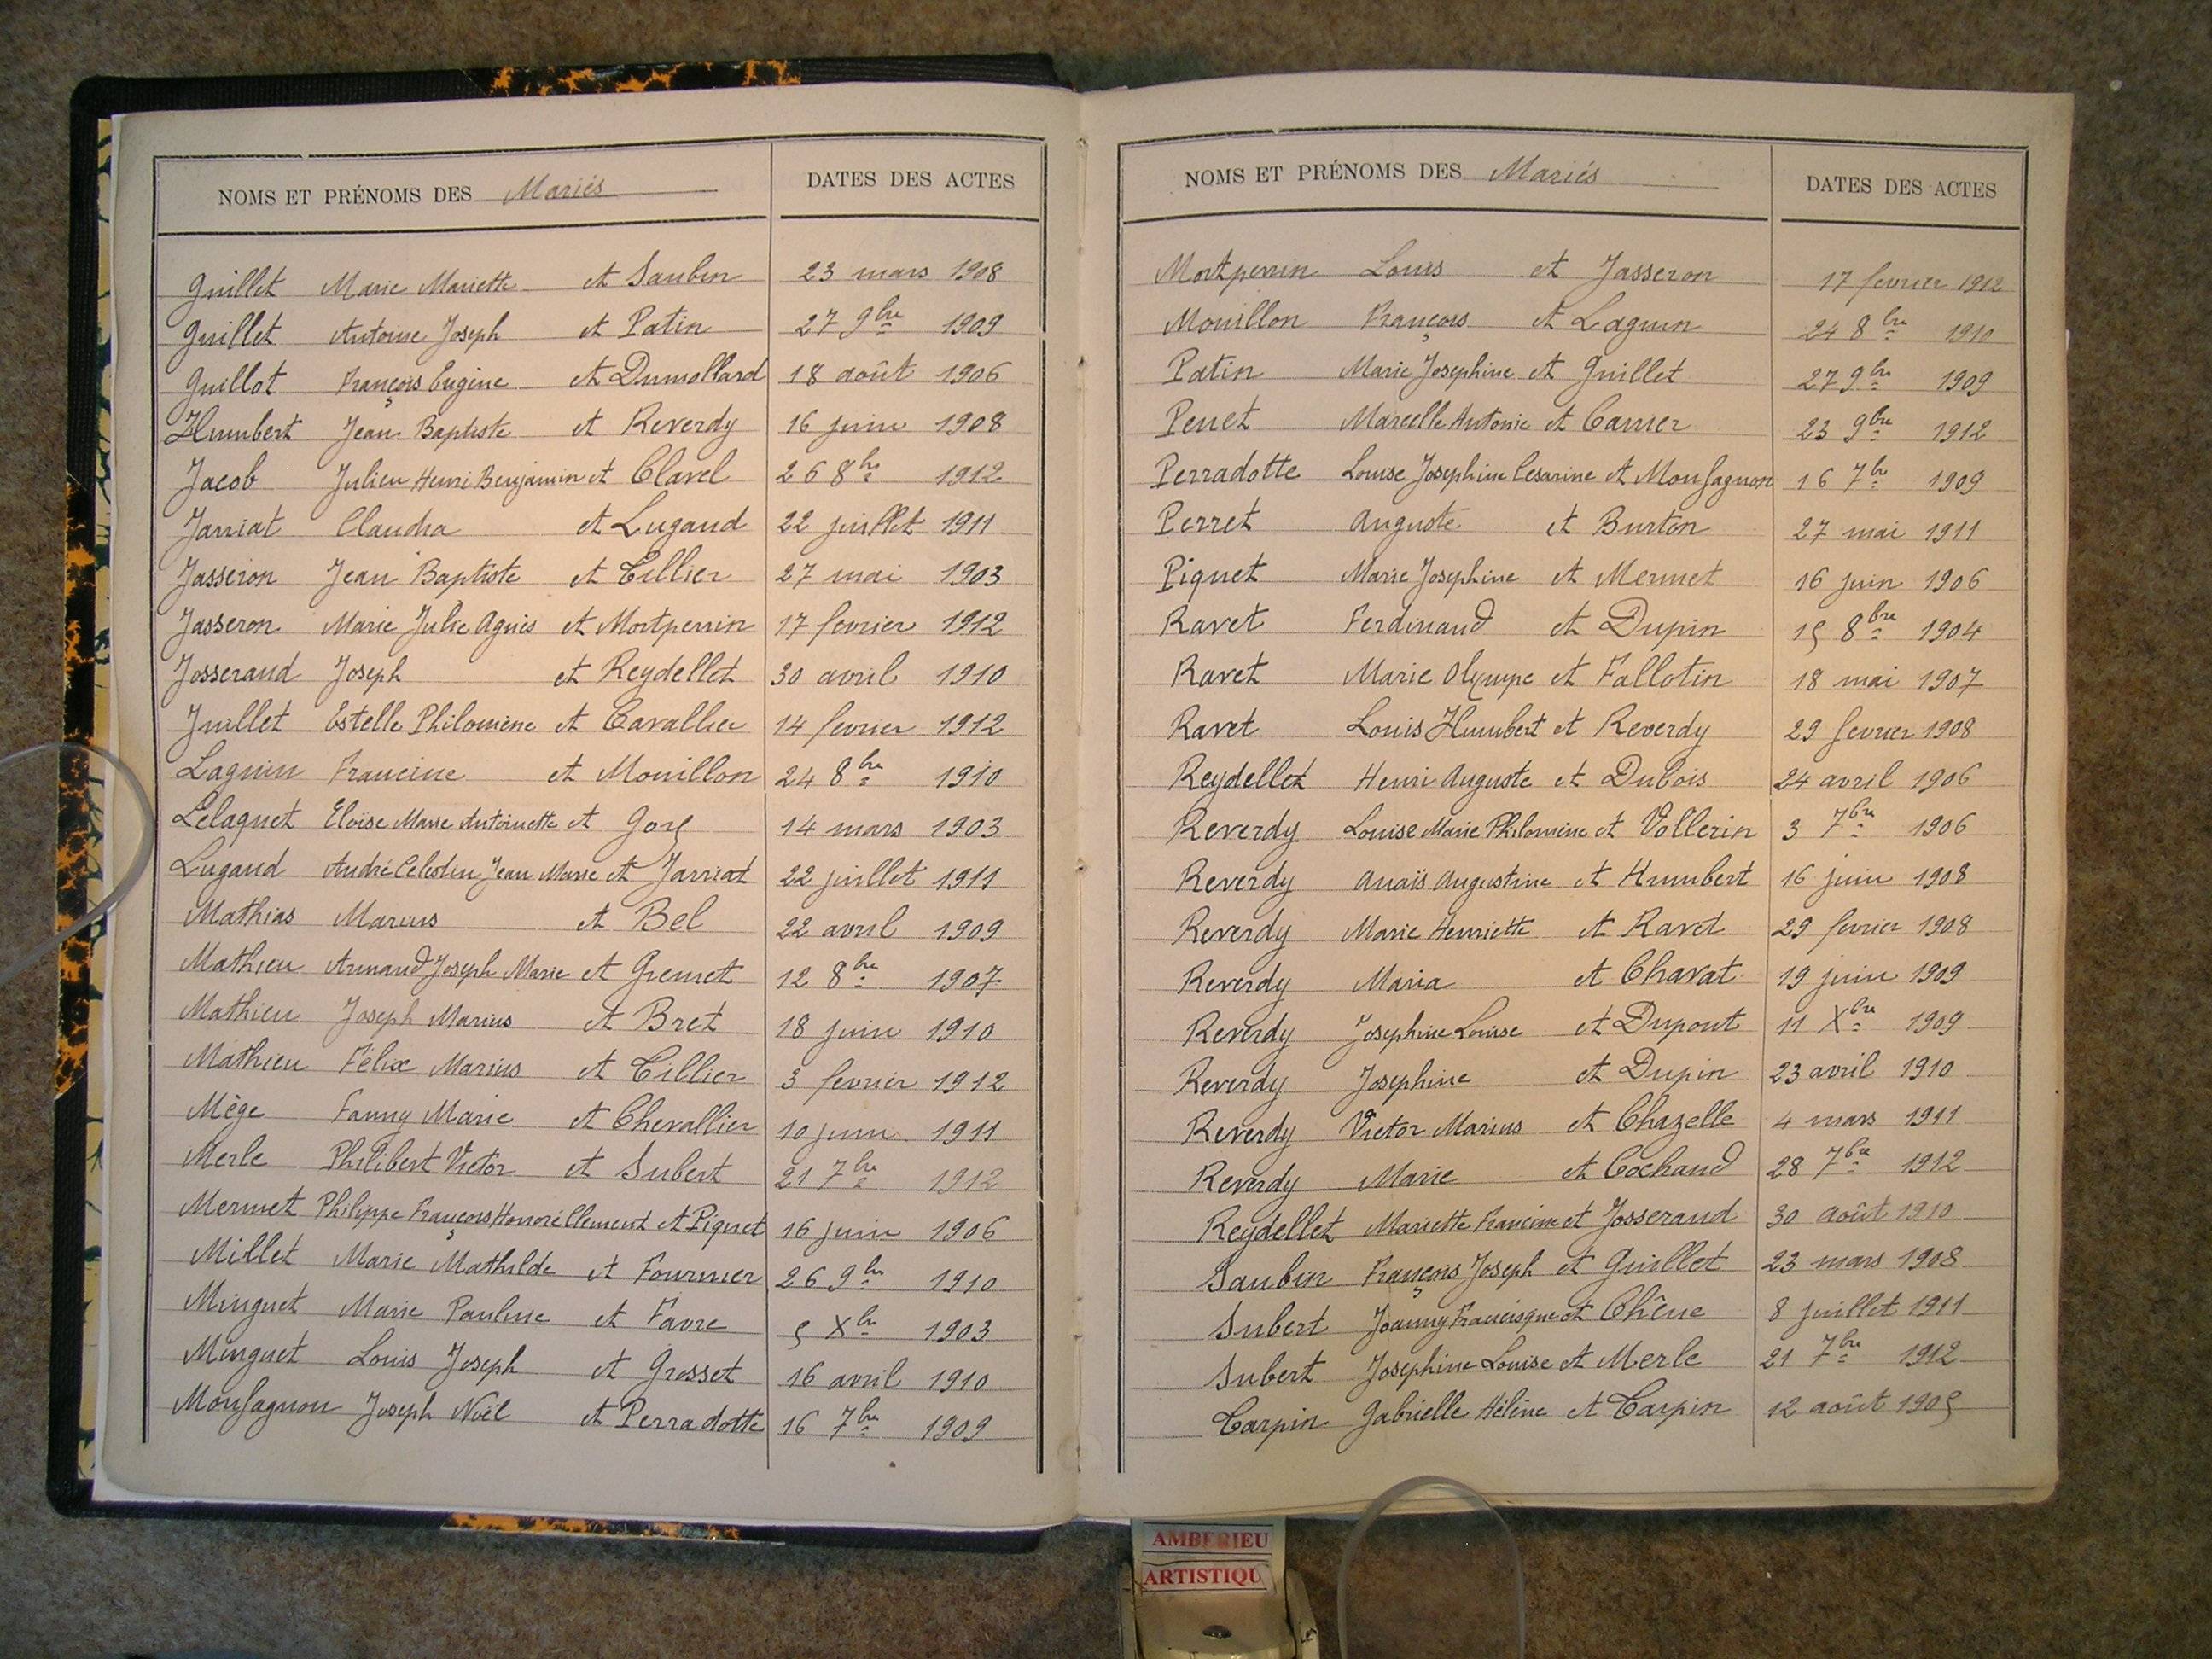 NOMS ET PRÉNOMS DES Mariés DATES DES ACTES
Guillet Marie Mariette et Saubin 23 mars 1908
Guillet Antoine Joseph et Patin 27 9bre 1909
Guillot François Eugène et Dumollard 18 août 1906
Humbert Jean Baptiste et Reverdy 16 juin 1908
Jacob Julien Henri Benjamin et Clavel 26 8bre 1912
Jarriat Claudia et Lugand 22 juillet 1911
Jasseron Jean Baptiste et Tillier 27 mai 1903
Jasseron Marie Julie Agnès et Mortperrin 17 fevrier 1912
Josserand Joseph et Reydellet 30 avril 1910
Juillet Estelle Philomène et Cavallier 14 fevrier 1912
Laguin Francine et Mouillon 24 8bre 1910
Lelaquet Eloïse Marie Antoinette et 14 mars 1903
Lugand André Celestin Jean Marie et Jarriat 22 juillet 1911
Mathias Marius et Bel 22 avril 1909
Mathieu Armand Joseph Marie et Gremet 12 8bre 1907
Mathieu Joseph Marius et Bret 18 juin 1910
Mathieu Félix Marius et Tillier 3 fevrier 1912
Mège Fanny Marie et Chevallier 10 juin 1911
Merle Philibert Victor et Subert 21 7bre 1912
Mermet Philippe François Honoré Clement et Piquet 16 juin 1906
Millet Marie Mathilde et Fournier 26 9bre 1910
Minguet Marie Pauline et Favre 5 Xbre 1903
Minguet Louis Joseph et Grosset 16 avril 1910
Monfagnon Joseph Noël et Perradotte 16 7bre 1909
NOMS ET PRÉNOMS DES Mariés DATES DES ACTES
Mortperrin Louis et Jasseron 17 fevrier 1912
Mouillon François et Laguin 24 8bre 1910
Patin Marie Josephine et Guillet 27 9bre 1909
Penet Marcelle Antonie et Carrier 23 9bre 1912
Perradotte Louise Josephine Cesarine et Monfagnon 16 7bre 1909
Perret Auguste et Burton 27 mai 1911
Piquet Marie Josephine et Mermet 16 juin 1906
Ravet Ferdinand et Dupin 15 8bre 1904
Ravet Marie Olympe et Fallotin 18 mai 1907
Ravet Louis Humbert et Reverdy 29 fevrier 1908
Reydellet Henri Auguste et Dubois 24 avril 1906
Reverdy Louise Marie Philomène et Vollerin 3 7bre 1906
Reverdy Anaïs Augustine et Humbert 16 juin 1908
Reverdy Marie Henriette et Ravet 29 fevrier 1908
Reverdy Maria et Charvat 19 juin 1909
Reverdy Josephine Louise et Dupont 11 Xbre 1909
Reverdy Josephine et Dupin 23 avril 1910
Reverdy Victor Marius et Chazelle 4 mars 1911
Reverdy Marie et Cochand 28 7bre 1912
Reydellet Mariette Francine et Josserand 30 août 1910
Saubin François Joseph et Guillet 23 mars 1908
Subert Joanny Francisque et Chêne 8 juillet 1911
Subert Josephine Louise et Merle 21 7bre 1912
Tarpin Gabrielle Hélène et Tarpin 12 août 1905
AMBERIEU
ARTISTIQU